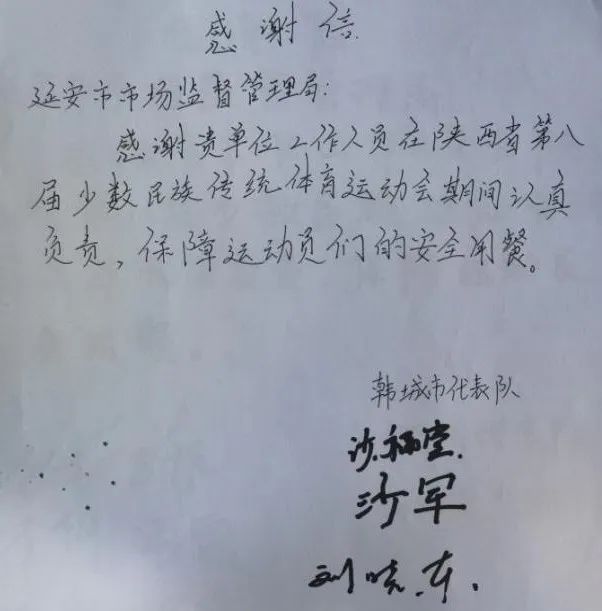 感谢信
延安市市场监督管理局:
感谢贵单位工作人员在陕西省第八
届少数民族传统体育运动会期间认真
负责，保障运动员们的安全用餐。
韩城市代表队
沙军
刘晓东.